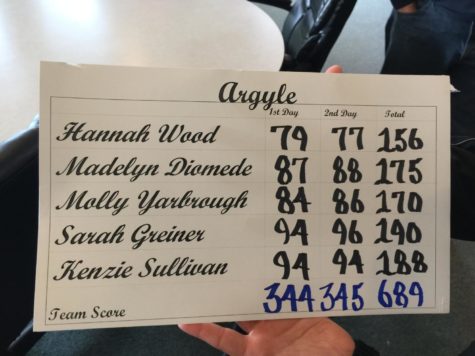 Argyle
1st Day 2nd Day Total
Hannah Wood 79 77 156
Madelyn Diomede 87 88 175
Molly Yarbrough 84 86 170
Sarah Greiner 94 96 190
Kenzie Sullivan 94 94 188
Team Score 344 345 689